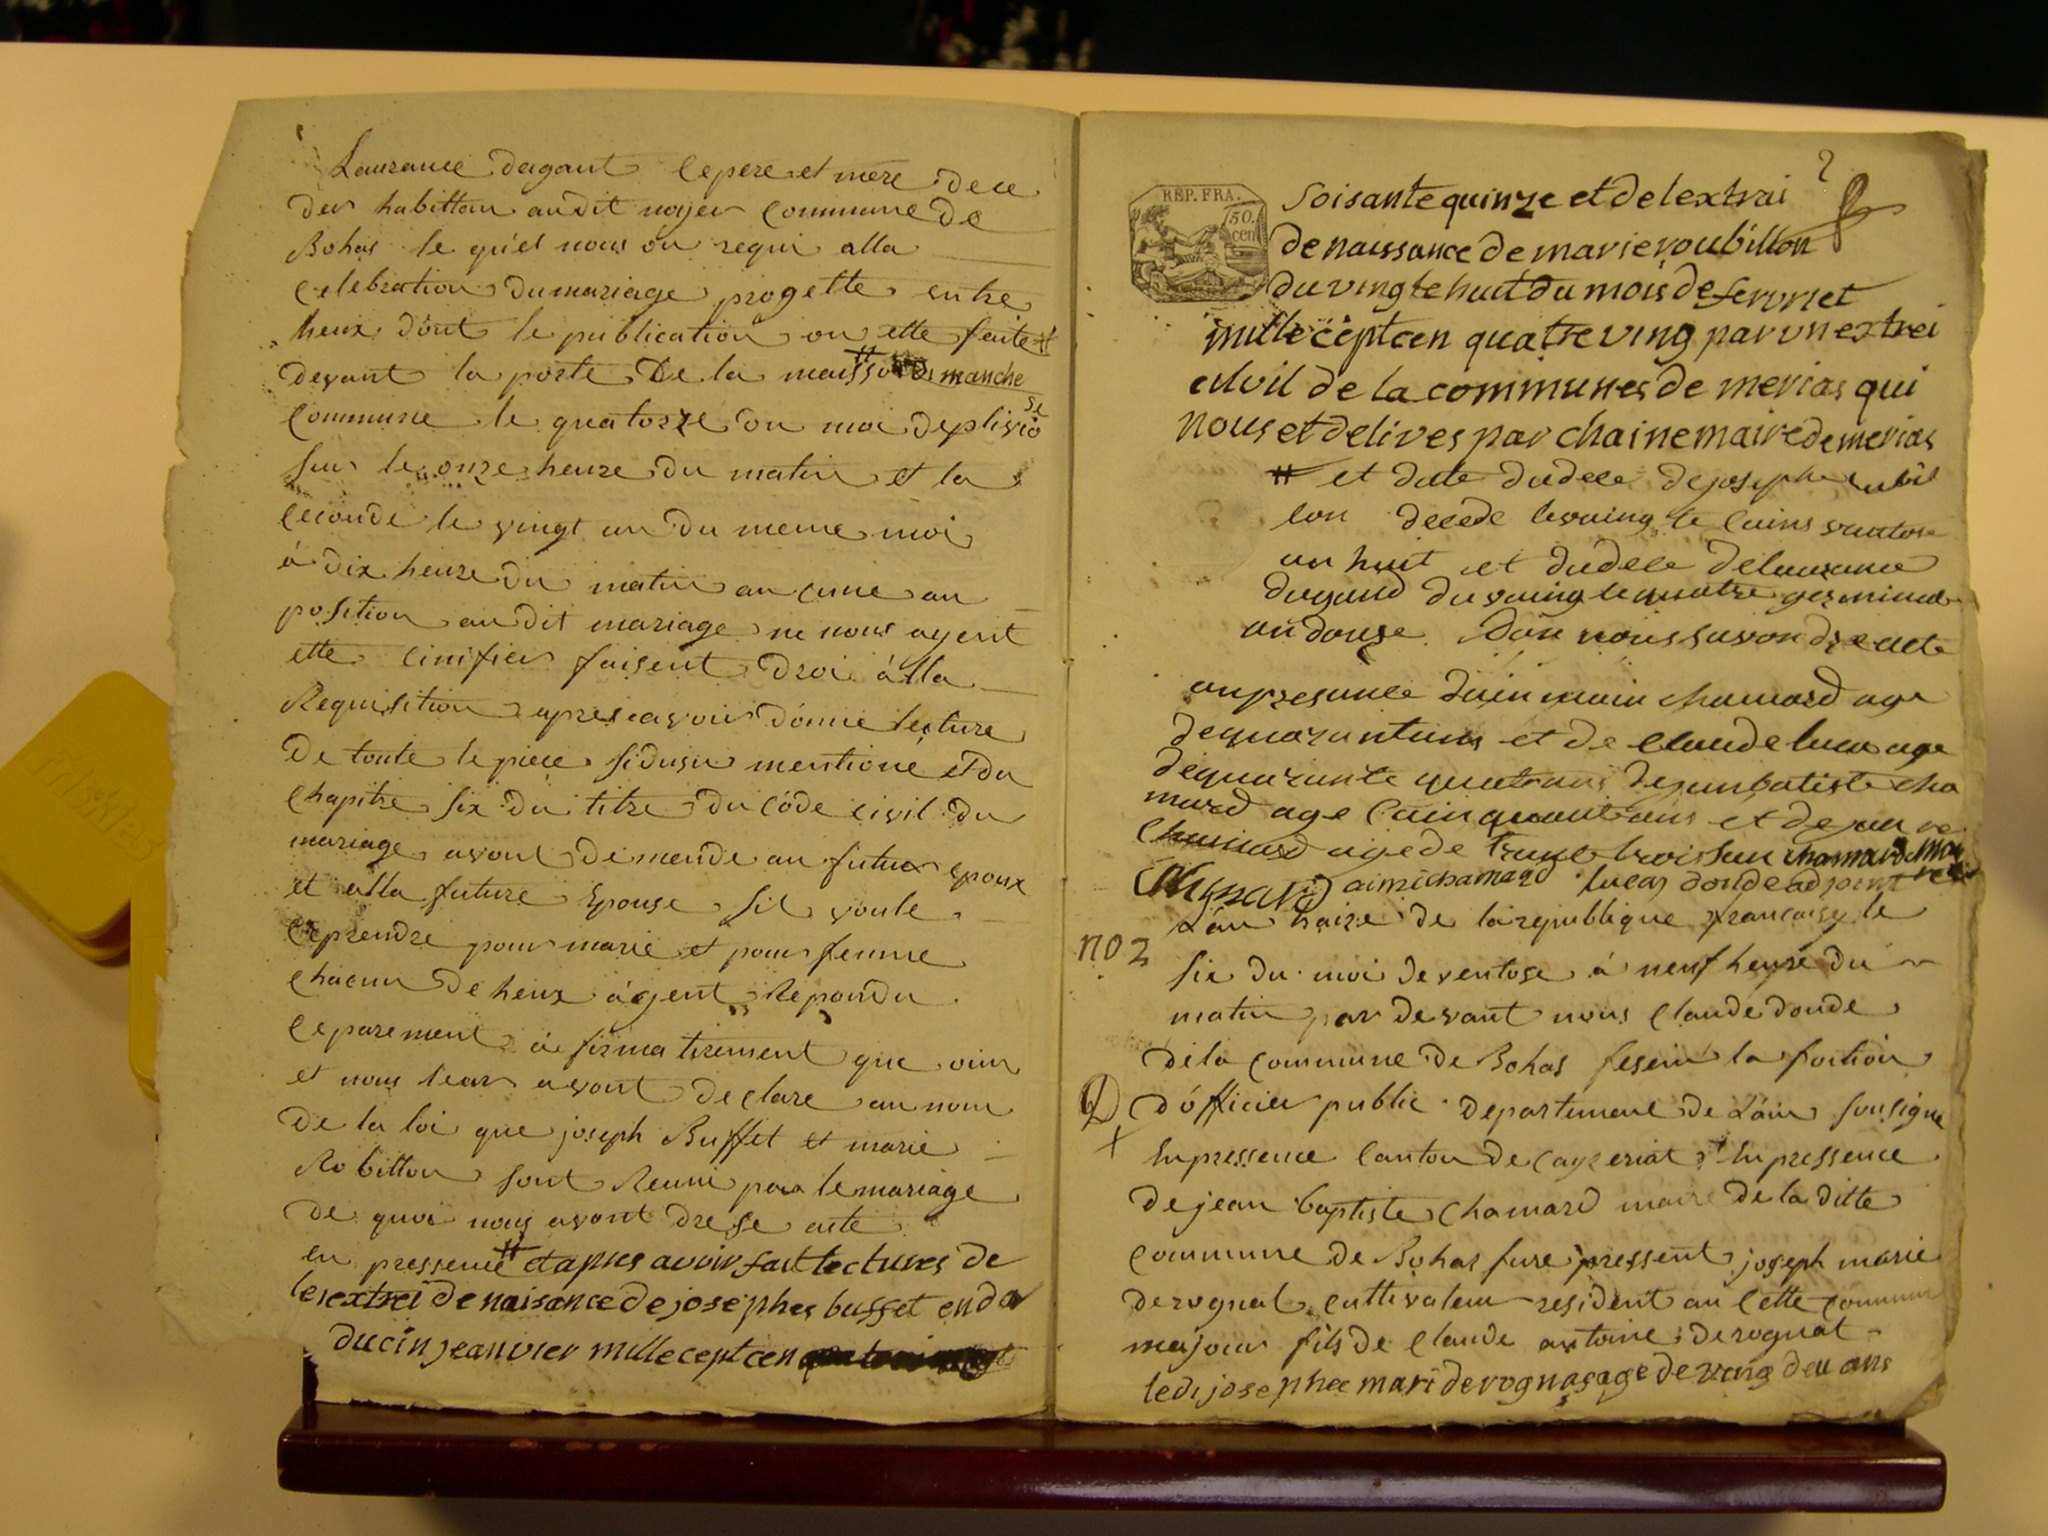 Laurance dagant le pere et mere dece
der habittan audit noyer commune de
Bohas le quel nous on requi alla
Celebration du mariage progette entre
heux dont le publication on ette faite #
devant la porte De la maisson # Dimanche
Commune le quatorze du moi de pluvio
se
sur le onze heure du matin et la
seconde le vingt un du meme moi
à dix heure du matin au cune au
position audit mariage ne nous ayent
ette cinifier faisent droi à lla
Requisition apres avoir donné lecture
De toute le piece sidusu mentioné et du
Chapitre six du titre du Code civil du
mariage avont demende au futur epoux
et alla future Epouse sil voule
ceprendre pour marie et pour femme
chacun de heux àyent Repondu
ceparement à firmativement que oui
et nous lear avont declare au nom
de la loi que joseph Buffet et marie
Robillon sont Reuni par le mariage
de quoi nous avont drese acte
en pressence # et apres avoir fait lectures de
lesextrei de naisance de josephes buffet en da
du cin jeanvier mille cept cen
2
REP. FRA.
50.
cen
soisante quinze et de lextrai
de naissance de marie roubillon
du vingt e huit du mois de fervriet
mille cept cen quatre ving par un extrei
cilvil de la communes de merias qui
nous et delives par chaine maire de merias
# et date du dece de joseph rubil
lon decede le vaing te cains vantose
an huit et du dece de laurance
dugand du vaing te quatre germinal
an douze. Don nous savon dre acte
an presance dain main chamard age
de quarantuns et de Claude lucas age
de quarante quatrans de janbatiste cha
mard age cainquantans et de jan
chamard age de trante trois san chamard mai
re
Chamard aime chamard lucas donde adjoint
no 2
L'an traize de la republique francaise le
six du moi de ventose à neuf heure du
matin par devant nous Claude donde
de la commune de Bohas fesein la fontion
d'officier public departement de L'ain sousigne
In pressence Canton de Cayzeriat In pressence
de jean baptiste Chamard maire de la ditte
commune de Bohas fure pressent joseph marie
derognat cultivateur resident au cette commun
majour fils de Claude antoine derognat
le di josephee mari derognas age de ving deu ans